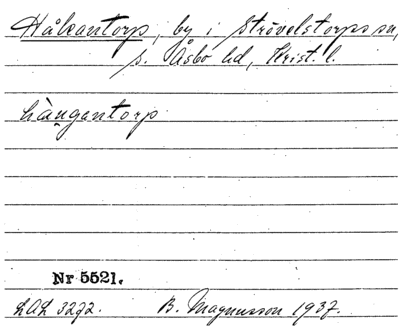 Håkantorp, by i Strövelstorps sn,
s. Åsbo hd, Krist. l.
hàŋgantorp
Nr 5521.
LAL 3272. B. Magnusson 1937.